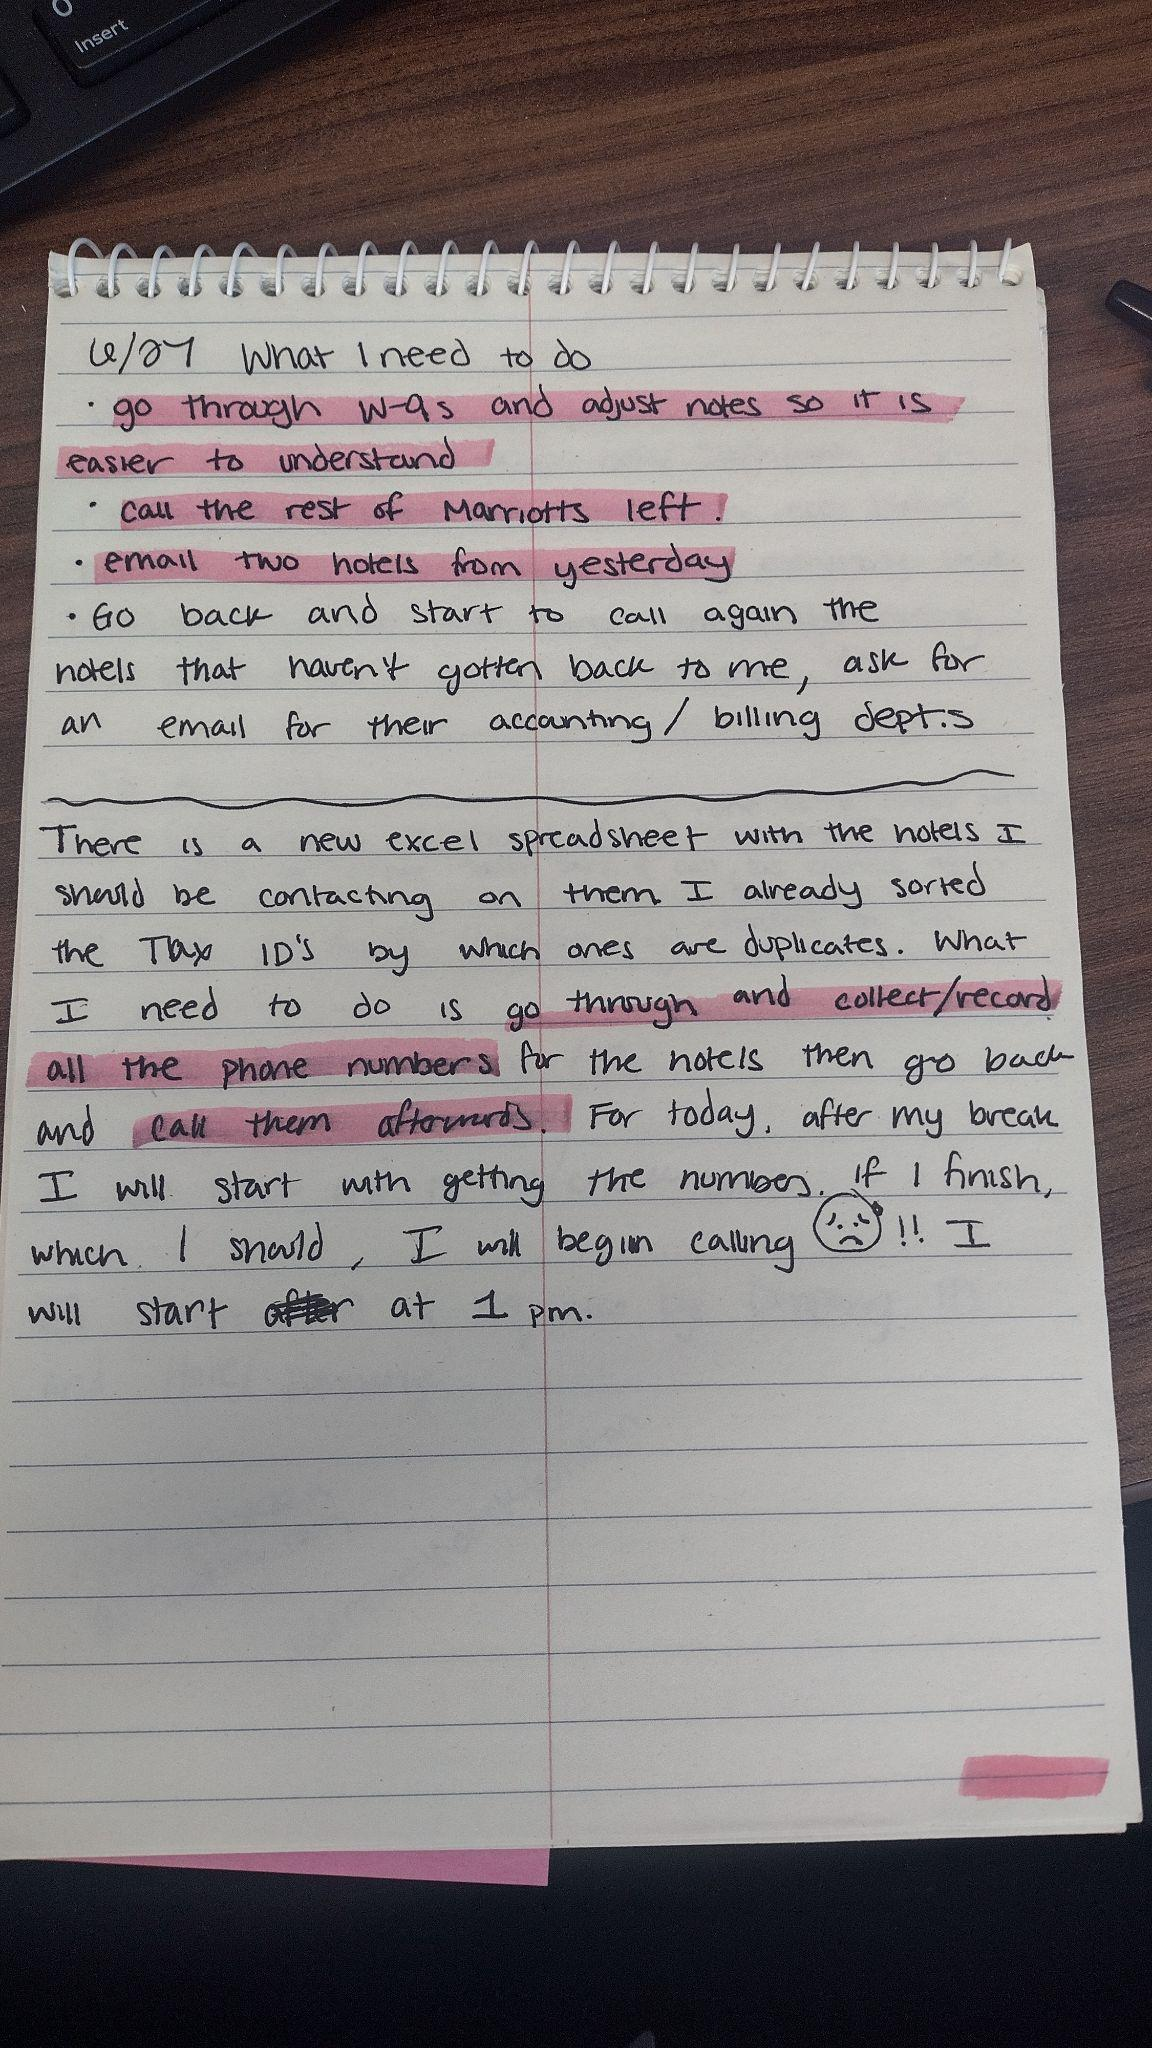 Insert
6/27 What I need to do
• go through W-9s and adjust notes so it is
easier to understand
• call the rest of Marriotts left.
• email two hotels from yesterday
• Go back and start to call again the
hotels that haven't gotten back to me, ask for
an email for their accounting / billing dept.s
There is a new excel spreadsheet with the hotels I
should be contacting on them. I already sorted
the Tax ID's by which ones are duplicates. What
I need to do is go through and collect/record
all the phone numbers for the hotels then go back
and call them afterwards. For today, after my break
I will start with getting the numbers. If I finish,
which I should, I will begin calling !! I
will start at 1 pm.